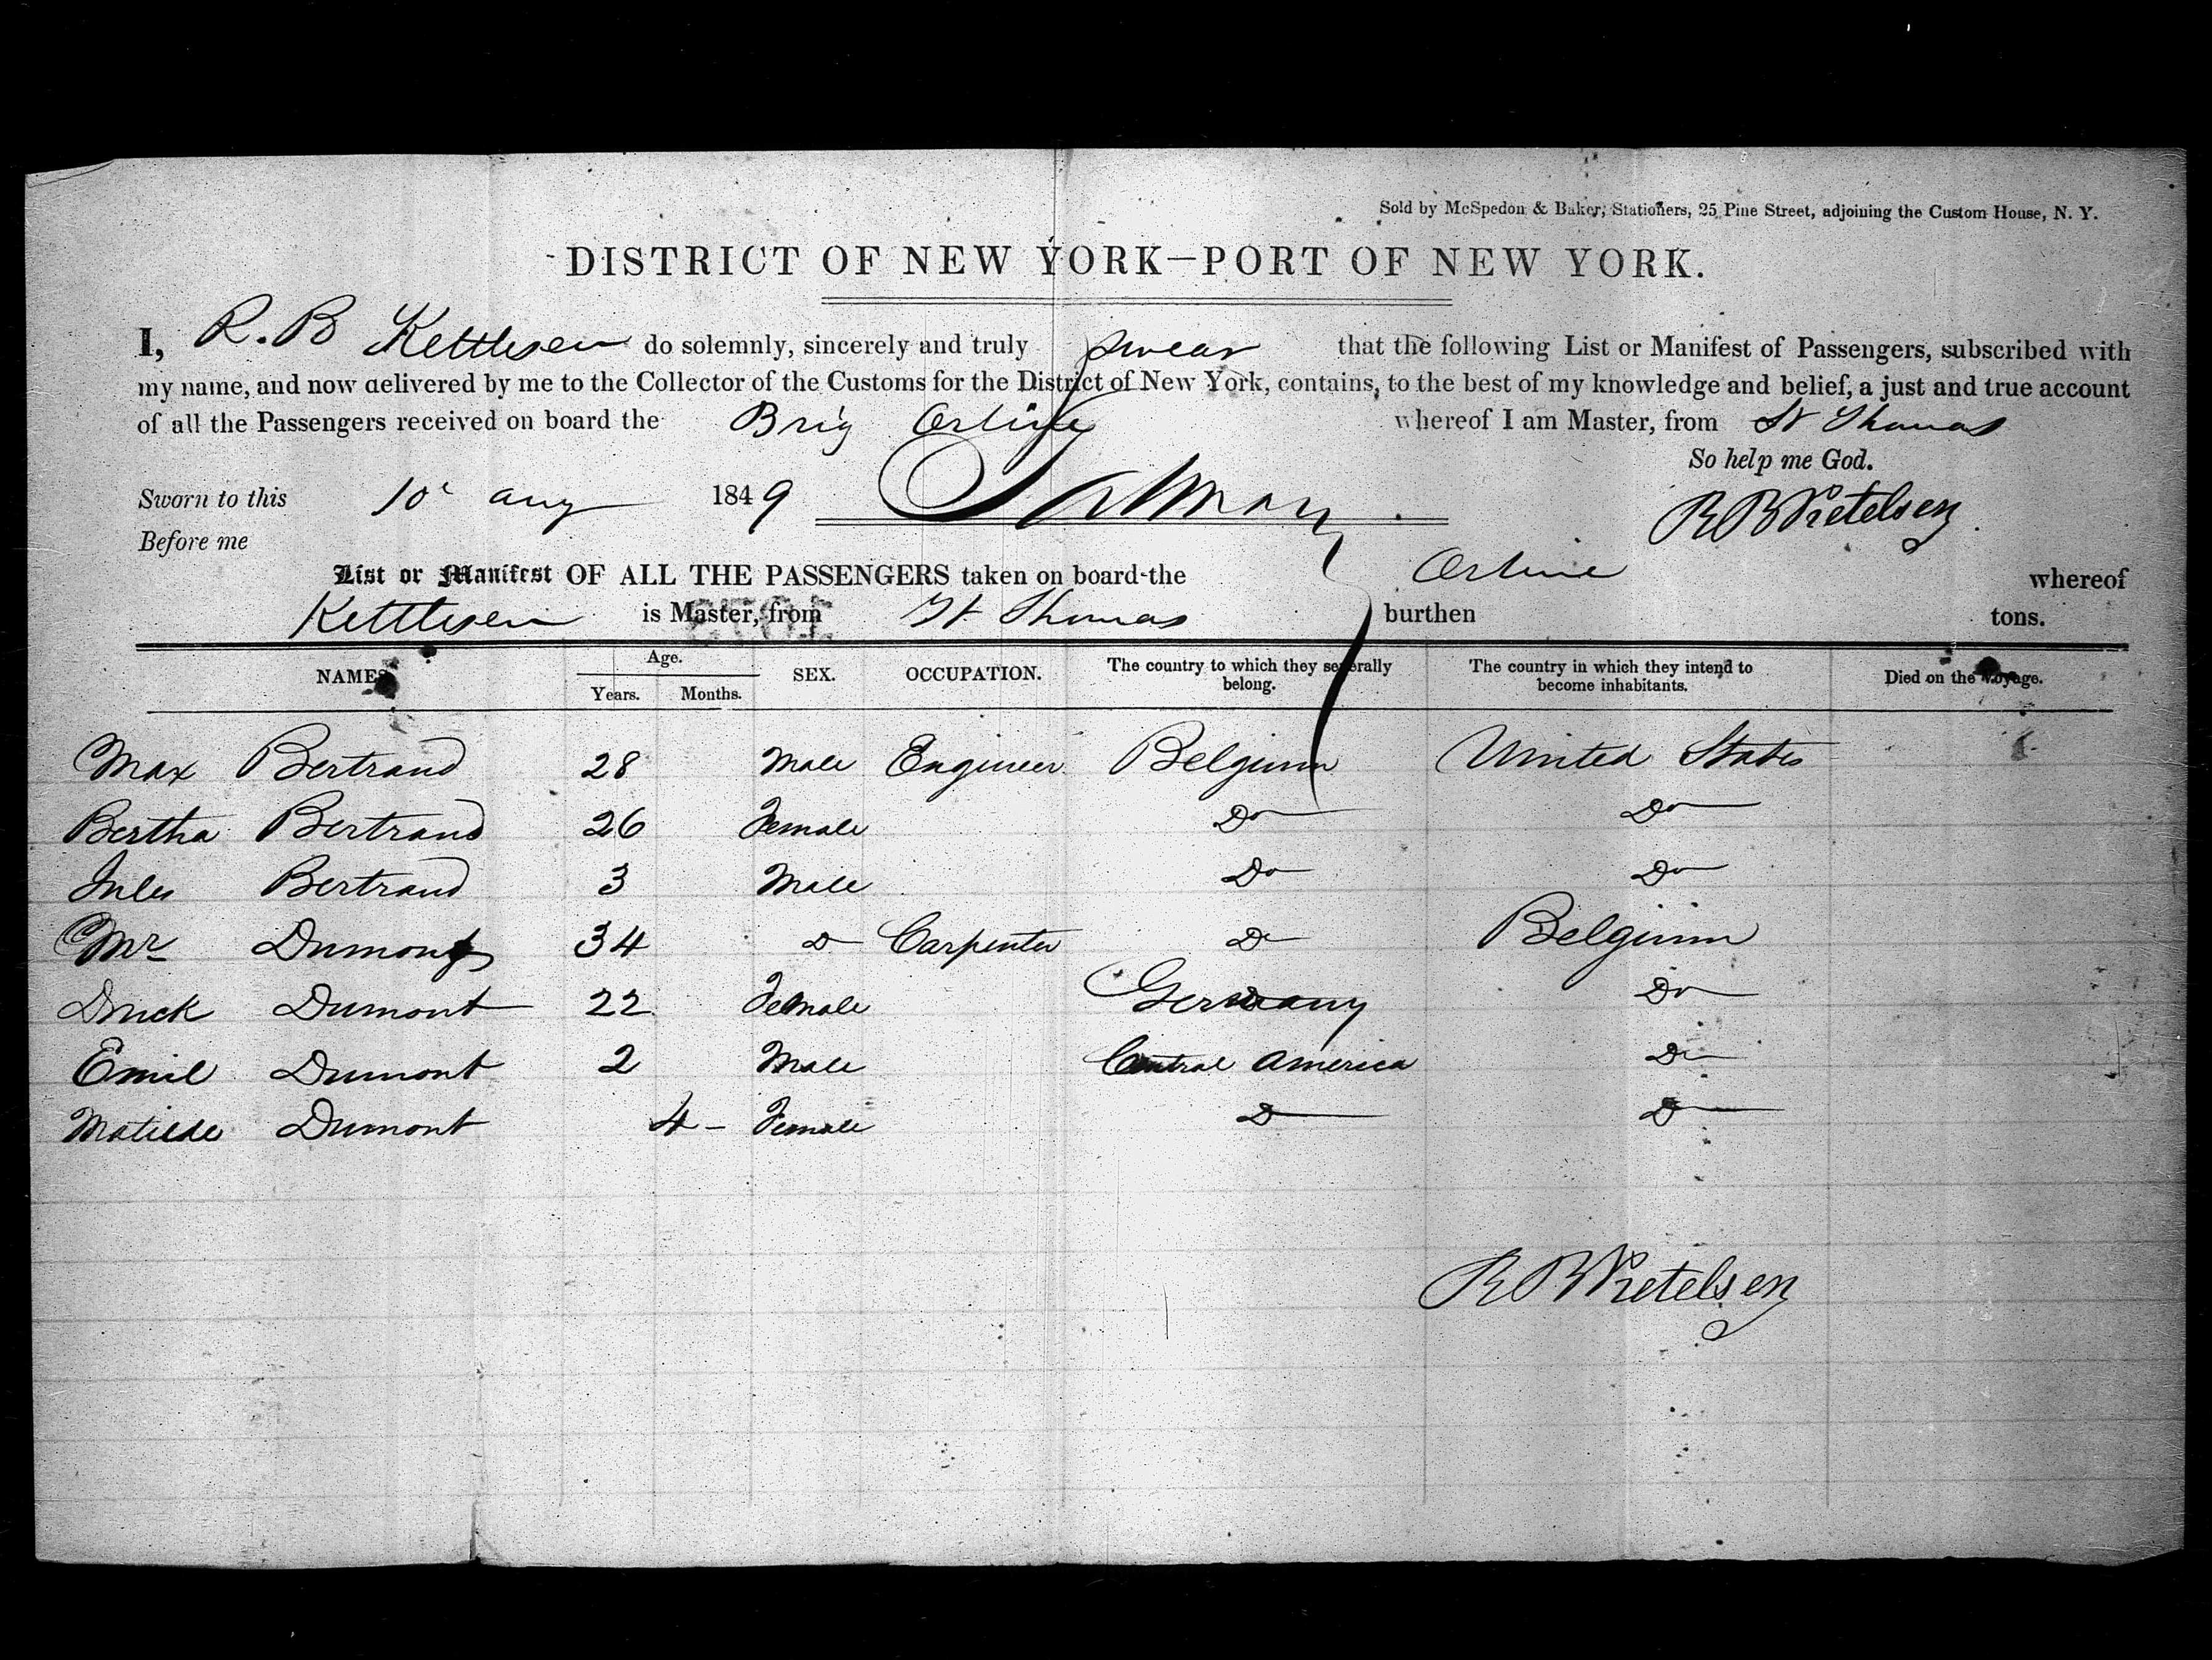 Sold by McSpedon & Baker, Stationers, 25 Pine Street, adjoining the Custom House, N. Y.
DISTRICT OF NEW YORK—PORT OF NEW YORK.
I, R. B Kettlesen do solemnly, sincerely and truly swear that the following List or Manifest of Passengers, subscribed with
my name, and now delivered by me to the Collector of the Customs for the District of New York, contains, to the best of my knowledge and belief, a just and true account
of all the Passengers received on board the Brig Orline whereof I am Master, from St Thomas
So help me God.
Sworn to this 10 aug 1849
Before me
List or Manifest OF ALL THE PASSENGERS taken on board the Orline whereof
Kettlesen is Master, from St Thomas burthen tons.
NAMES Age. Years. Months. SEX. OCCUPATION. The country to which they severally belong. The country in which they intend to become inhabitants. Died on the voyage.
Max Bertrand 28 Male Engineer Belgium United States
Bertha Bertrand 26 Female Do Do
Jules Bertrand 3 Male Do Do
Mr Dumont 34 D Carpenter D Belgium
Dumont 22 Female Germany Do
Emil Dumont 2 Male Central America D
Matilde Dumont 4 - Female D D